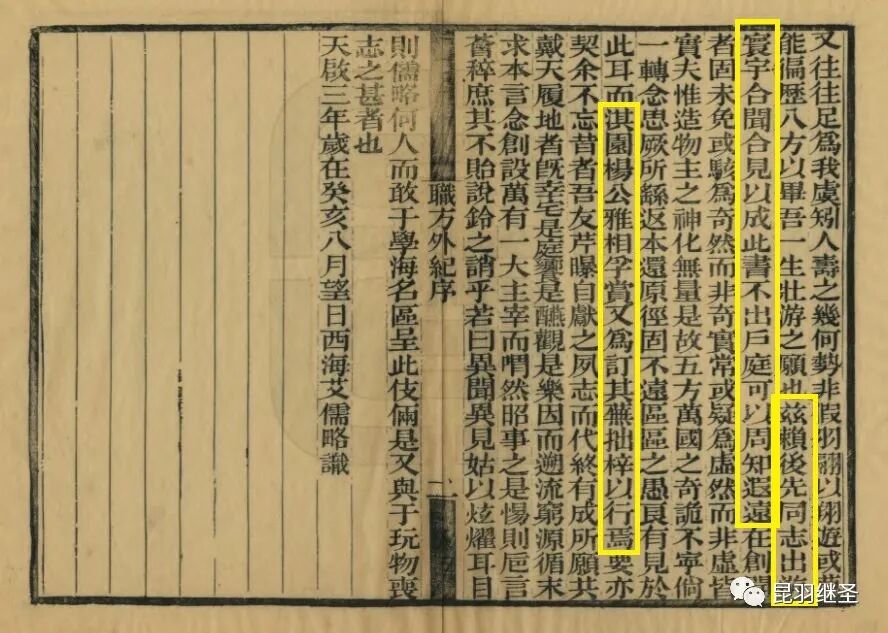 又往往足爲我虞矧人壽之幾何勢非假羽翮以翔遊或莫
能徧歷八方以畢吾一生壯游之願也兹賴後先同志出游
寰宇合聞合見以成此書不出戶庭可以周知遐遠在創聞
者固未免或駭爲奇然而非奇實常或疑爲虚然而非虚皆
實夫惟造物主之神化無量是故五方萬國之奇詭不寧倘
一轉念思厥所繇返本還原徑固不遠區區之愚良有見於
此耳而淇園楊公雅相孚賞又爲訂其蕪拙梓以行焉要亦
契余不忘昔者吾友芹曝自獻之夙志而代終有成所願共
戴天履地者旣幸宅是庭饗是醼觀是樂因而遡流窮源循末
求本言念創設萬有一大主宰而喟然昭事之是惕則巵言
薈稡庶其不貽說鈴之誚乎若曰異聞異見姑以炫耀耳目
職方外紀序
二
則儒略何人而敢于學海名區呈此伎倆是又與于玩物喪
志之甚者也
天啟三年歲在癸亥八月望日西海艾儒略識
昆羽继圣